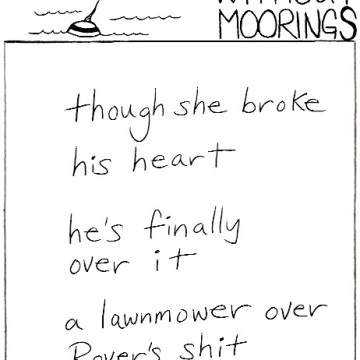 MOORINGS
though she broke
his heart
he's finally
over it
a lawnmower over
Rover's shit